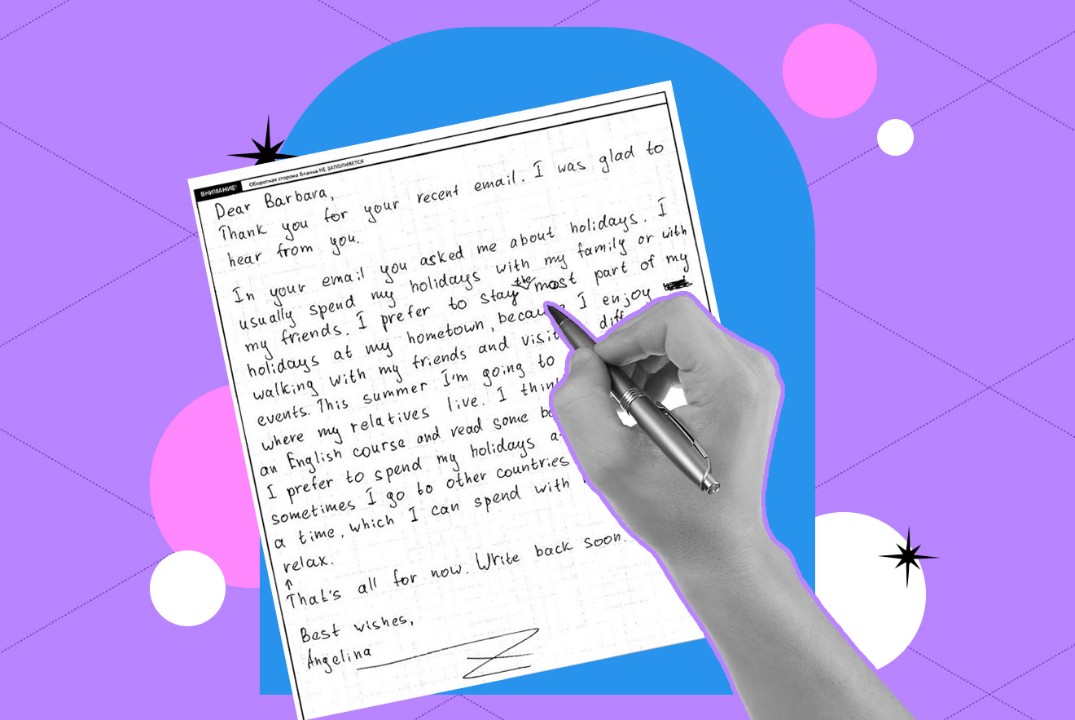 ВНИМАНИЕ! Оборотная сторона бланка НЕ ЗАПОЛНЯЕТСЯ
Dear Barbara,
Thank you for your recent email. I was glad to
hear from you.
In your email you asked me about holidays. I
usually spend my holidays with my family or with
my friends. I prefer to stay the most part of my
holidays at my hometown, because I enjoy
walking with my friends and visit
events. This summer I'm going to
where my relatives live. I think
an English course and read some
I prefer to spend my holidays
sometimes I go to other countries
a time, which I can spend with
relax.
That's all for now. Write back soon.
Best wishes,
Angelina